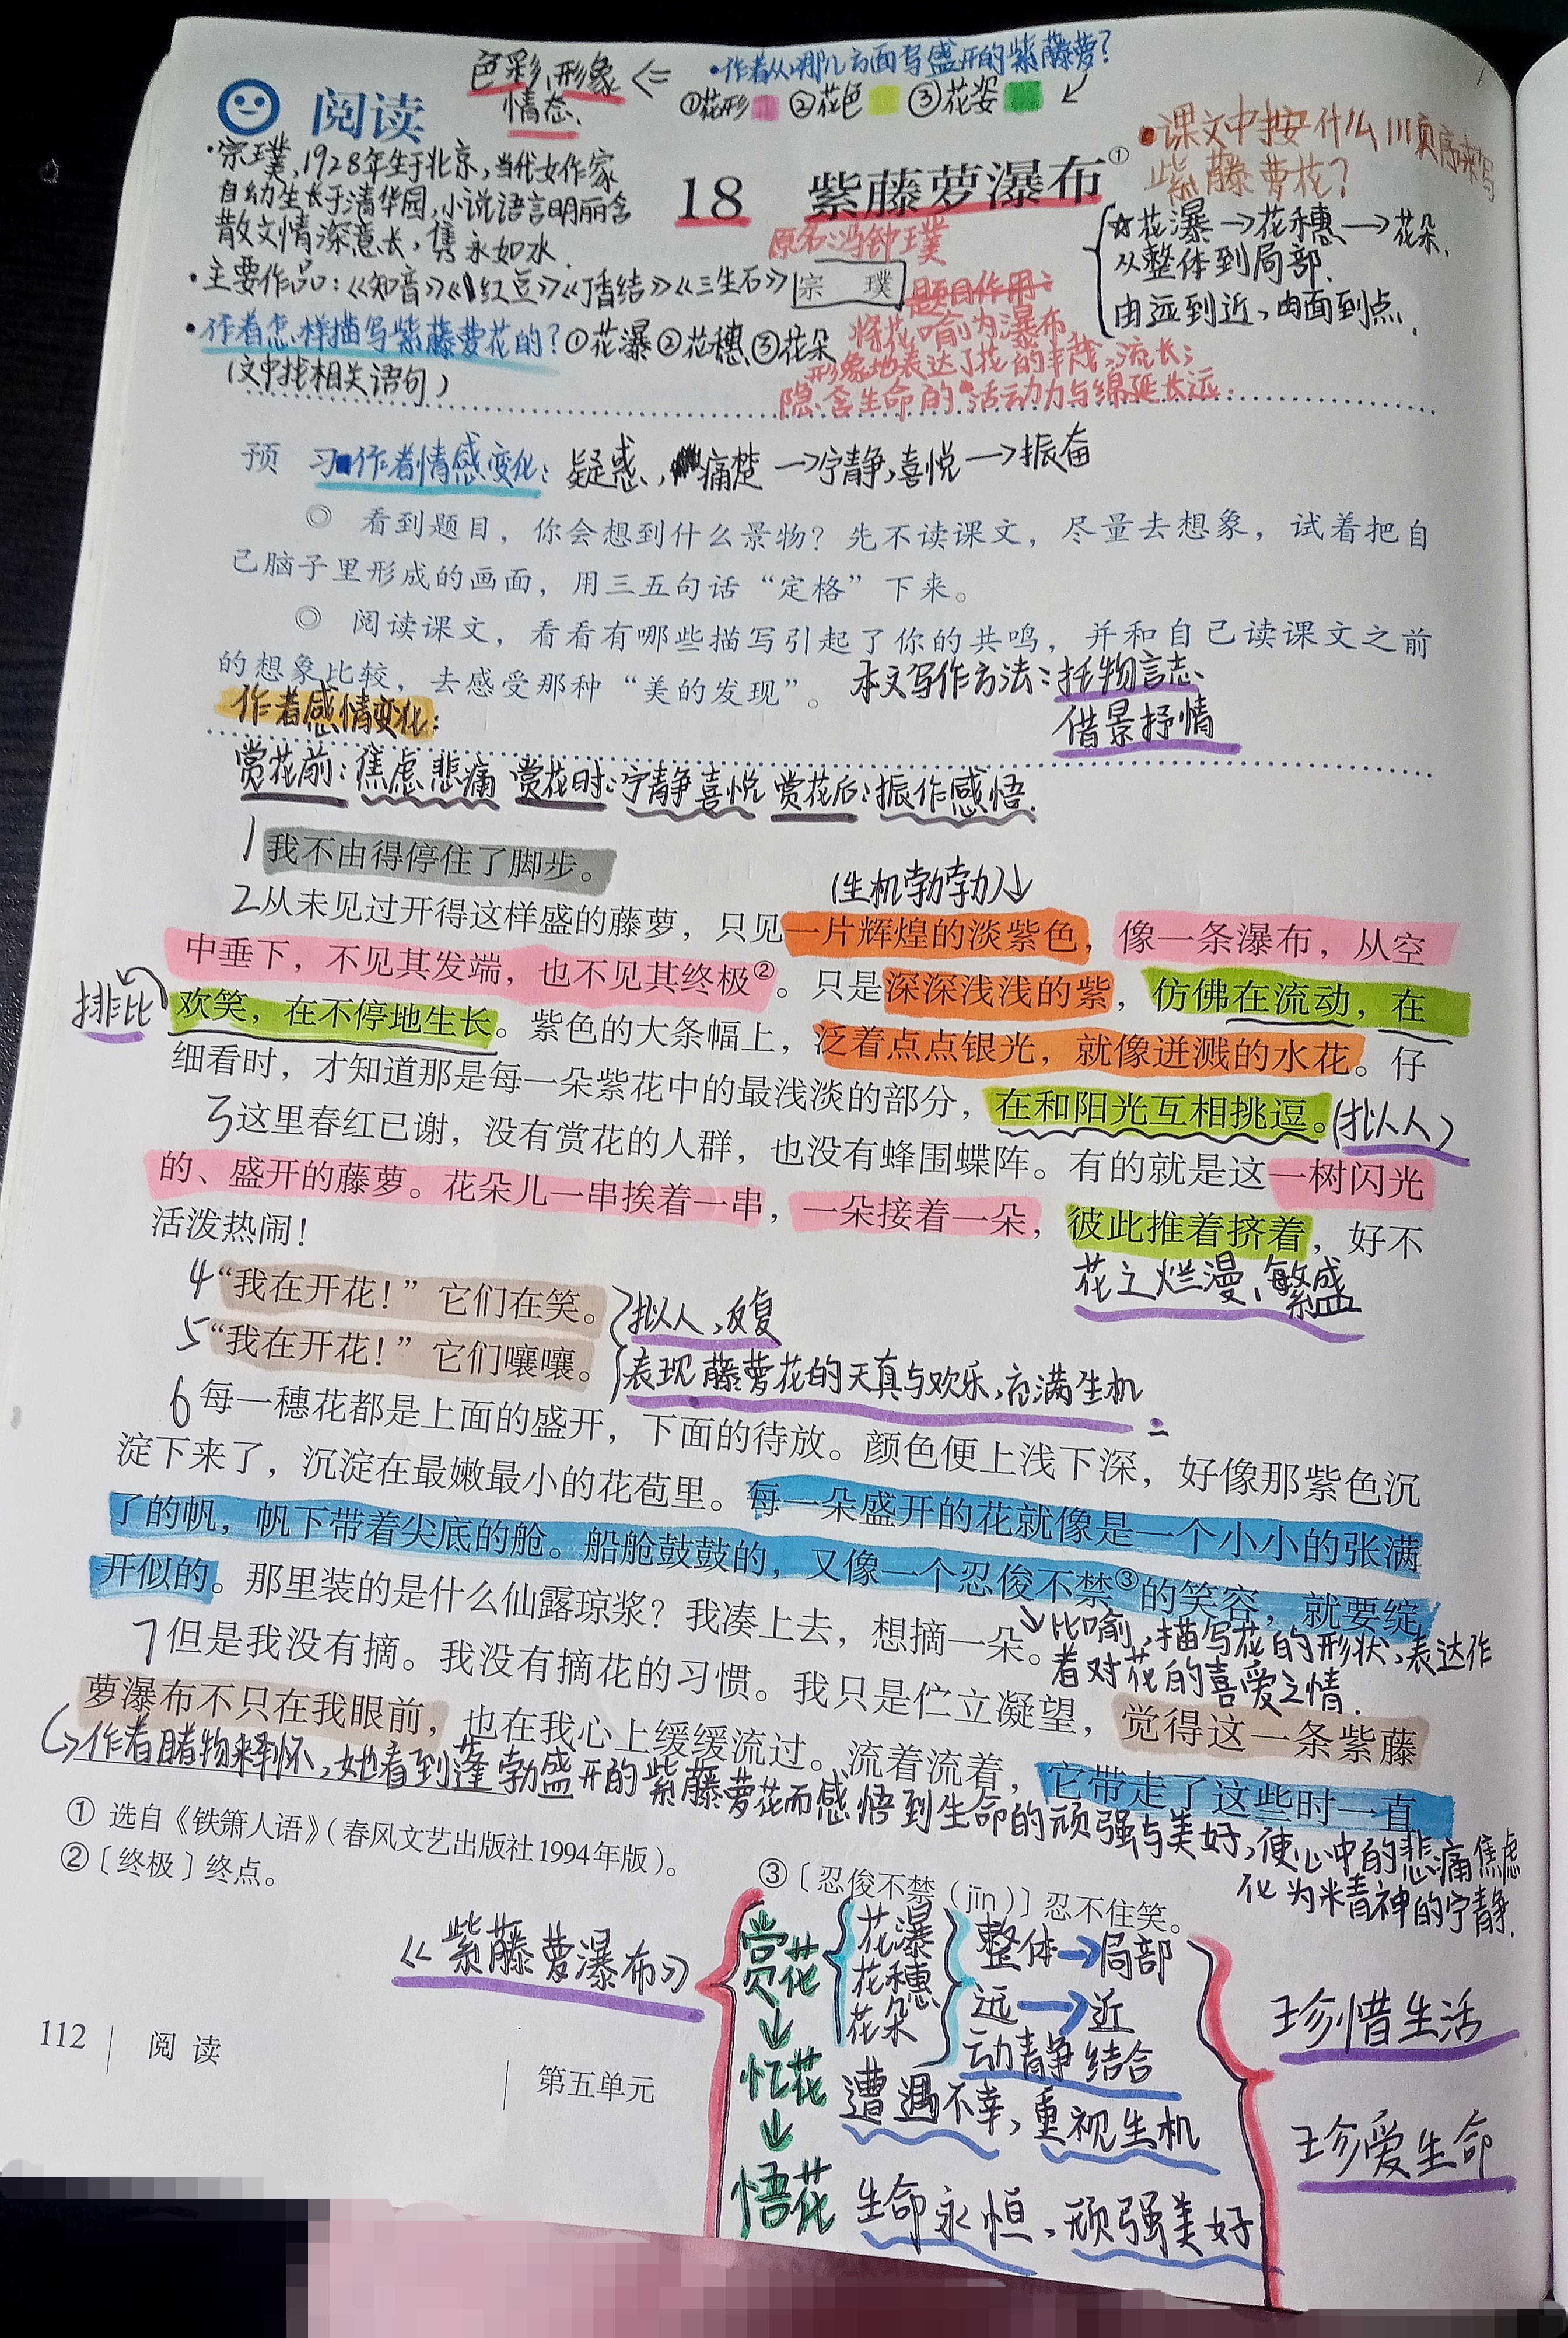 色彩、形象 <= ·作者从哪几方面写盛开的紫藤萝?
情态、 ①花形 ②花色 ③花姿
阅读
·课文中按什么顺序来写
紫藤萝花?
·宗璞,1928年生于北京,当代女作家
自幼生长于清华园,小说语言明丽含
散文情深意长,隽永如水.
18 紫藤萝瀑布①
原名:冯钟璞
☆花瀑→花穗→花朵.
从整体到局部.
由远到近、由面到点.
·主要作品:《知音》《红豆》《丁香结》《三生石》
宗 璞
题目作用:
将花喻为瀑布,
形象地表达了花的丰茂、流长;
隐含生命的活动力与绵延长远.
·作者怎样描写紫藤萝花的?①花瀑②花穗③花朵
(文中找相关语句)
预 习 作者情感变化:疑惑,痛楚→宁静,喜悦→振奋
◎ 看到题目,你会想到什么景物?先不读课文,尽量去想象,试着把自
己脑子里形成的画面,用三五句话“定格”下来。
◎ 阅读课文,看看有哪些描写引起了你的共鸣,并和自己读课文之前
的想象比较,去感受那种“美的发现”。
本文写作方法:托物言志、
借景抒情
作者感情变化:
赏花前:焦虑悲痛 赏花时:宁静喜悦 赏花后:振作感悟.
1我不由得停住了脚步。
(生机勃勃)↓
2从未见过开得这样盛的藤萝,只见一片辉煌的淡紫色,像一条瀑布,从空
中垂下,不见其发端,也不见其终极②。只是深深浅浅的紫,仿佛在流动,在
排比
欢笑,在不停地生长。紫色的大条幅上,泛着点点银光,就像迸溅的水花。仔
细看时,才知道那是每一朵紫花中的最浅淡的部分,在和阳光互相挑逗。(拟人)
3这里春红已谢,没有赏花的人群,也没有蜂围蝶阵。有的就是这一树闪光
的、盛开的藤萝。花朵儿一串挨着一串,一朵接着一朵,彼此推着挤着,好不
活泼热闹!
花之烂漫、繁盛
4“我在开花!”它们在笑。
5“我在开花!”它们嚷嚷。
拟人,反复
表现藤萝花的天真与欢乐,充满生机
6每一穗花都是上面的盛开,下面的待放。颜色便上浅下深,好像那紫色沉
淀下来了,沉淀在最嫩最小的花苞里。每一朵盛开的花就像是一个小小的张满
了的帆,帆下带着尖底的舱。船舱鼓鼓的,又像一个忍俊不禁③的笑容,就要绽
开似的。那里装的是什么仙露琼浆?我凑上去,想摘一朵。
比喻,描写花的形状,表达作
者对花的喜爱之情.
7但是我没有摘。我没有摘花的习惯。我只是伫立凝望,觉得这一条紫藤
萝瀑布不只在我眼前,也在我心上缓缓流过。流着流着,它带走了这些时一直
作者睹物释怀,她看到蓬勃盛开的紫藤萝花而感悟到生命的顽强与美好,使心中的悲痛焦虑
化为精神的宁静.
① 选自《铁箫人语》(春风文艺出版社1994年版)。
②〔终极〕终点。
③〔忍俊不禁(jīn)〕忍不住笑。
《紫藤萝瀑布》
赏花
花瀑
花穗
花朵
整体→局部
远→近
动静结合
↓
忆花 遭遇不幸,重视生机
↓
悟花 生命永恒、顽强美好
珍惜生活
珍爱生命
112 阅 读
第五单元